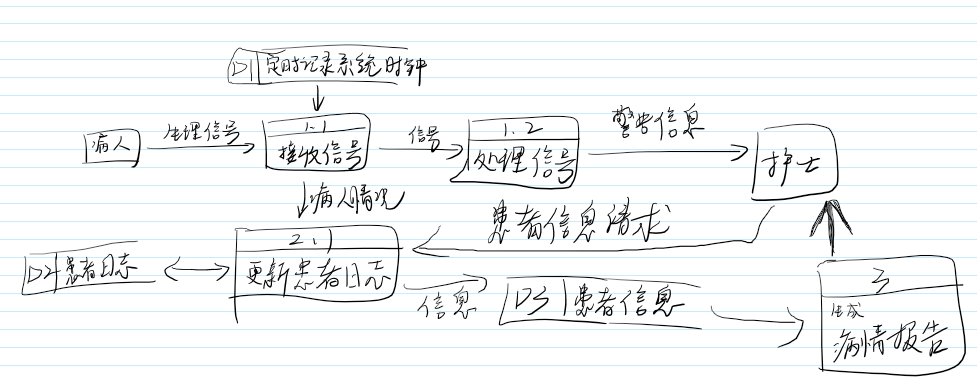 D1 定时记录系统时钟
病人
生理信号
1.1
接收信号
信号
1.2
处理信号
警告信息
护士
病人情况
患者信息请求
D2 患者日志
2.1
更新患者日志
信息
D3 患者信息
3
生成
病情报告